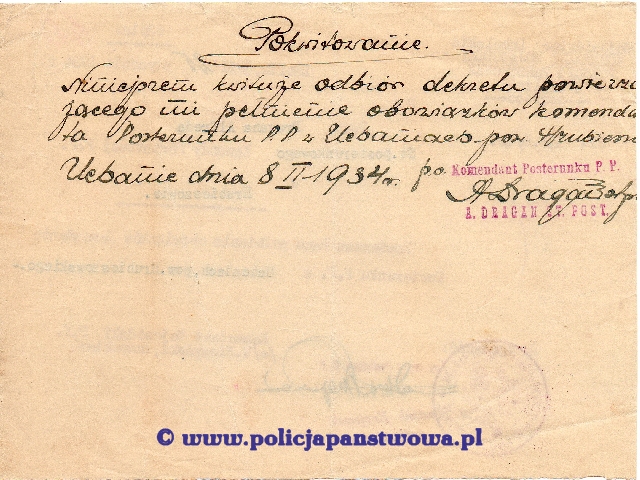 Pokwitowanie.
Niniejszem kwituję odbiór dekretu powierza
jącego mi pełnienie obowiązków Komenda
ta Posterunku PP w Uchaniach pow. Hrubies
Uchanie dnia 8 II 1934 r. po. Komendant Posterunku P. P.
A Dragan st. p
A. DRAGAN ST. POST.
© www.policjapanstwowa.pl